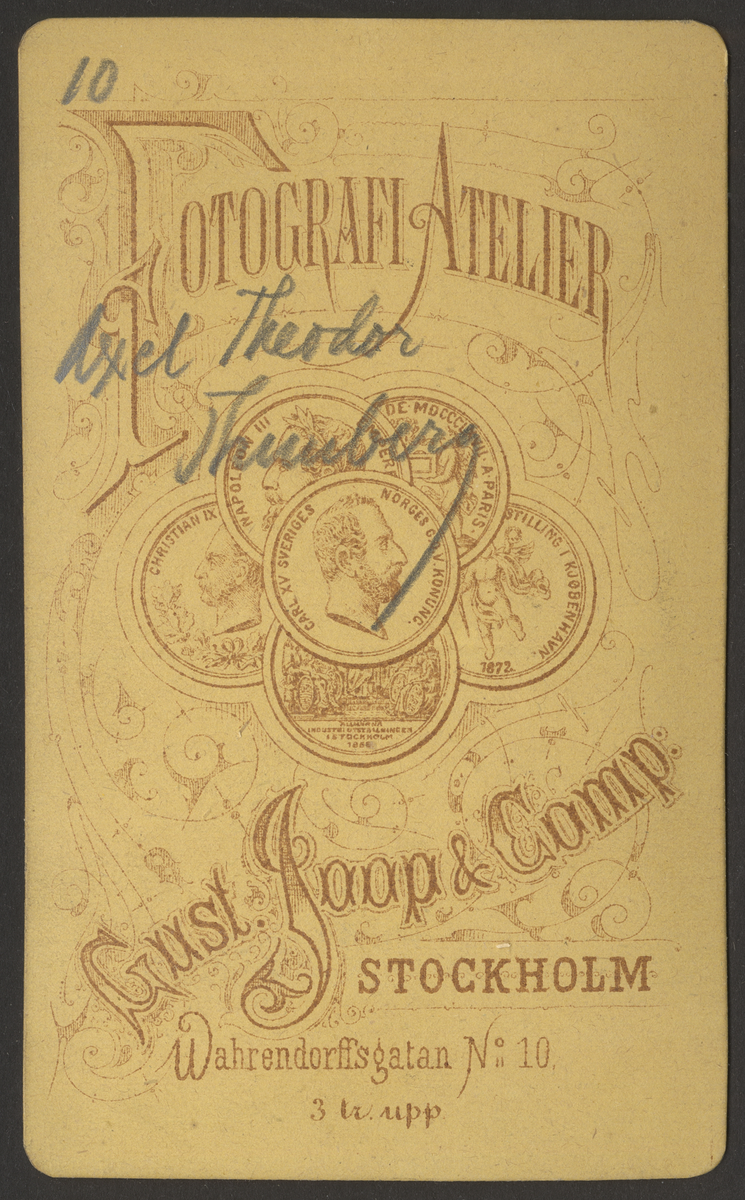 10
FOTOGRAFI ATELIER
Axel Theodor
Thunberg
NAPOLEON III
DE A PARIS.
CHRISTIAN IX
CARL XV SVERIGES NORGES G. O. V. KONUNG.
STILLING I KJØBENHAVN.
1872.
ALLMÄNNA
INDUSTRIUTSTÄLLNINGEN
I STOCKHOLM
1866
Gust. Joop & Comp.
STOCKHOLM
Wahrendorffsgatan No 10,
3 tr. upp.